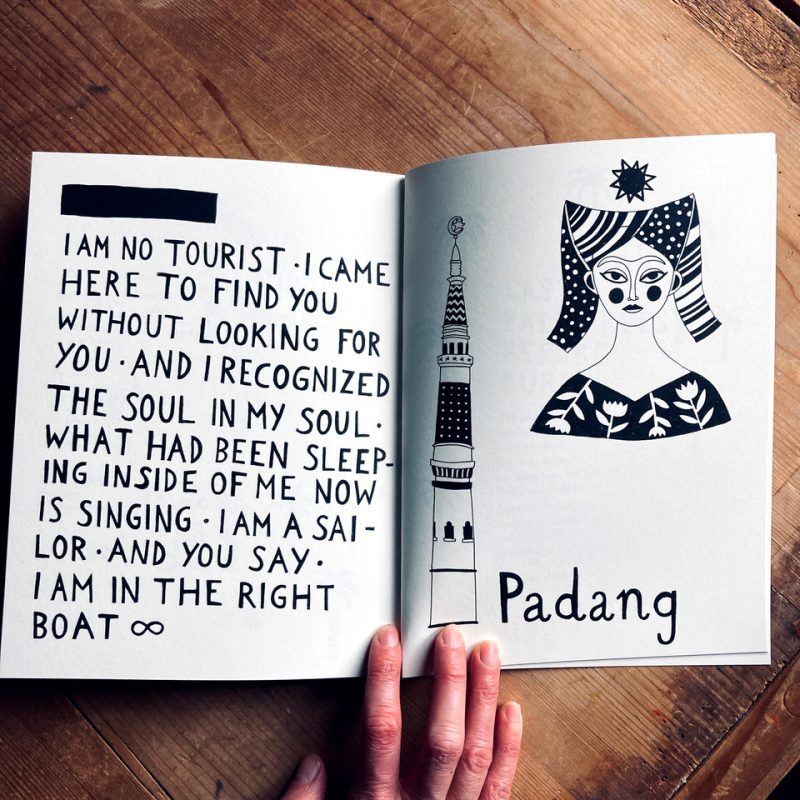 I AM NO TOURIST · I CAME
HERE TO FIND YOU
WITHOUT LOOKING FOR
YOU · AND I RECOGNIZED
THE SOUL IN MY SOUL ·
WHAT HAD BEEN SLEEP-
ING INSIDE OF ME NOW
IS SINGING · I AM A SAI-
LOR · AND YOU SAY ·
I AM IN THE RIGHT
BOAT ∞
Padang